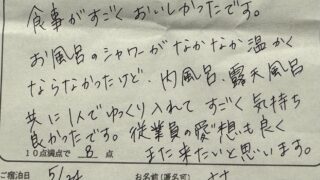 食事がすごくおいしかったです。
お風呂のシャワーがなかなか温かく
ならなかったけど、内風呂、露天風呂
共に1人でゆっくり入れてすごく気持ち
良かったです。従業員の愛想も良く
また来たいと思います。
10点満点で 8 点
ご宿泊日 5/24 お名前(匿名可)